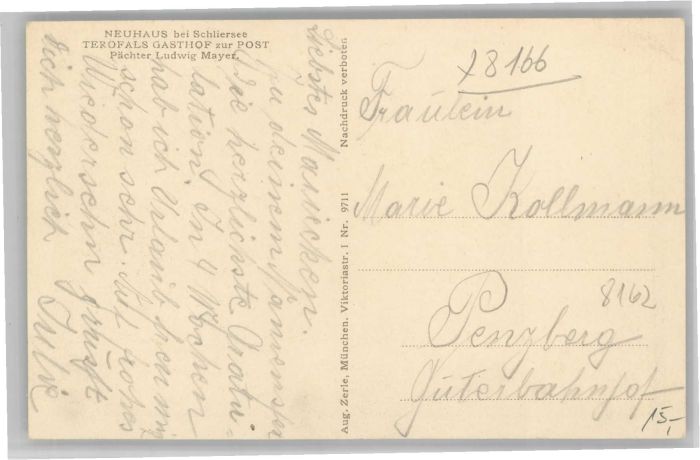 NEUHAUS bei Schliersee
TEROFALS GASTHOF zur POST
Pächter Ludwig Mayer.
Liebstes Mariechen.
Zu deinem Namenstag
die herzlichste Gratu-
lation. In 4 Wochen
hab ich Urlaub freu mich
schon sehr. Auf frohes
Wiedersehn grüsst
dich herzlich Julie
Aug. Zerle, München, Viktoriastr. 1 Nr. 9711 Nachdruck verboten
x8166
Fräulein
Marie Kollmann
8162
Penzberg
Güterbahnhof
15,-